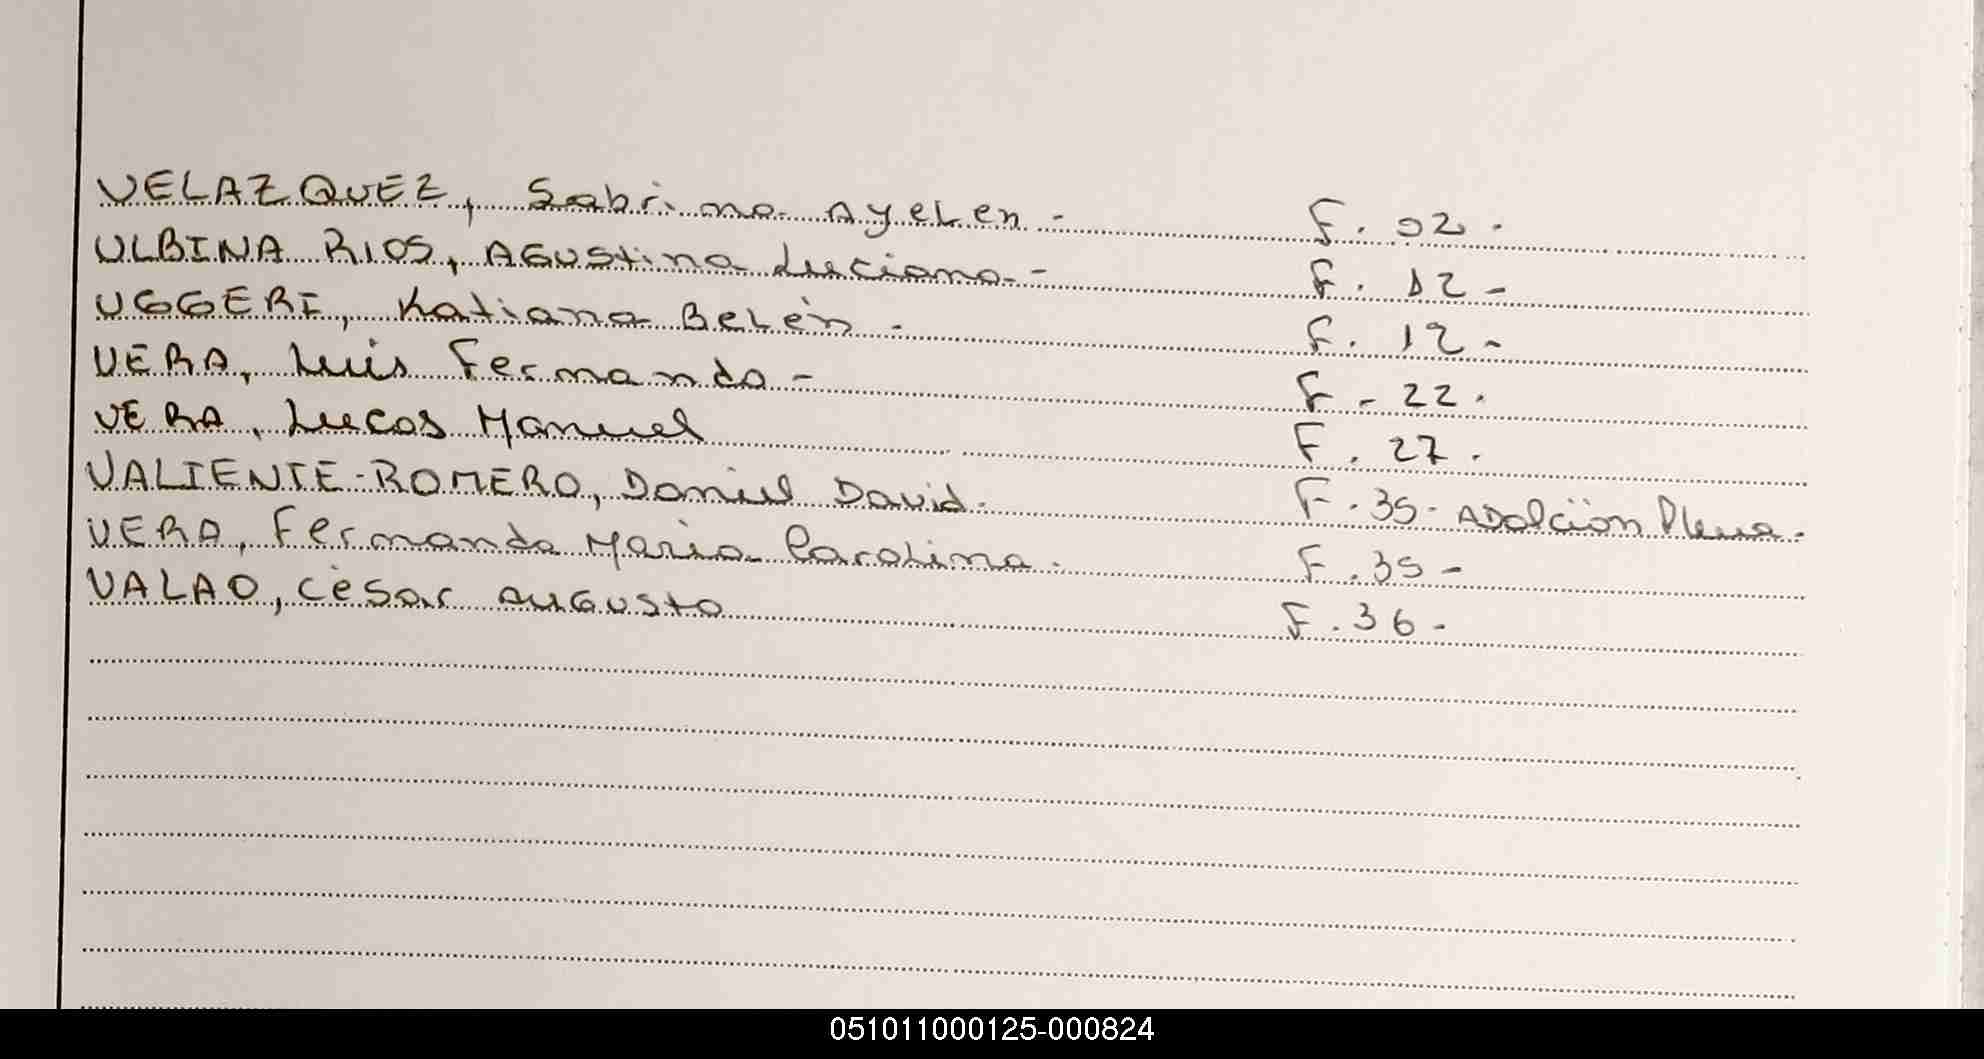 VELAZQUEZ, Sabrina Ayelen - F. 02.
ULBINA RIOS, Agustina Luciana.- F. 12 -
UGGERI, Katiana Belén. F. 12 -
VERA, Luis Fernando - F - 22.
VERA, Lucas Manuel F. 27.
VALIENTE-ROMERO, Daniel David. F. 35- Adolción Plena.
VERA, Fernanda Maria Carolina. F. 35 -
VALAO, César Augusto F. 36 -
051011000125-000824